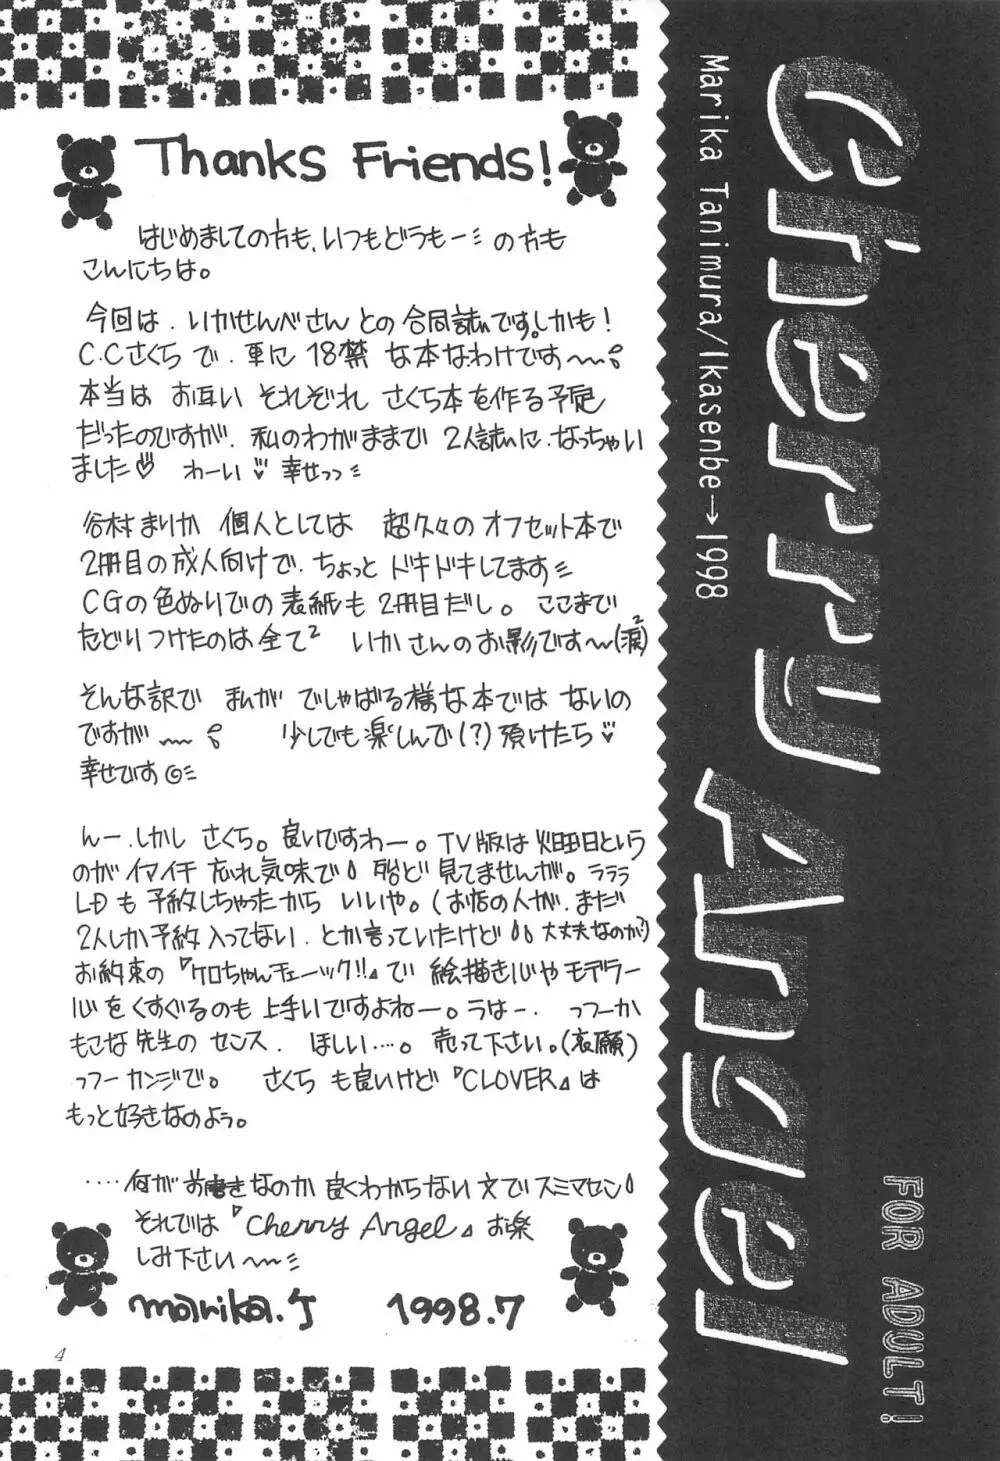 Thanks Friends!
はじめましての方も、いつもどうもーミの方も
こんにちは。
今回は、いかせんべさんとの合同誌です。しかも!
C.Cさくらで、更に18禁な本なわけです〜
本当はお互いそれぞれさくら本を作る予定
だったのですが、私のわがままで2人誌に、なっちゃい
ました♡ わーい♡ 幸せっっ
谷村まりか個人としては 超久々のオフセット本で
2冊目の成人向けで、ちょっとドキドキしてます
CGの色ぬりでの表紙も2冊目だし。ここまで
たどりつけたのは全て² いかさんのお影です〜(涙²)
そんな訳で まんが でしゃばる様な本では ないの
ですが〜 少しでも楽しんで(?)頂けたら♡
幸せです☺
んー、しかし さくら。良いですわー。TV版は火曜日という
のがイマイチ 忘れ気味で 殆ど 見てませんが。ラララ
LDも予約しちゃったから いいや。(お店の人が、まだ
2人しか予約入ってない、とか言っていたけど 大丈夫なのか?)
お約束の『ケロちゃんチェーック!!』で 絵描き心やモデラー
心をくすぐるのも上手いですよねー。うはー、 っつーか
もこな先生のセンス、ほしい…。売って下さい。(哀願)
っつーカンジで。 さくらも良いけど『CLOVER』は
もっと好きなのよう。
‥‥何がお書きなのか良くわからない文でスミマセン
それでは『Cherry Angel』お楽
しみ下さい〜
marika.T 1998.7
4
Cherry Angel
Marika Tanimura/Ikasenbe→1998
FOR ADULT!